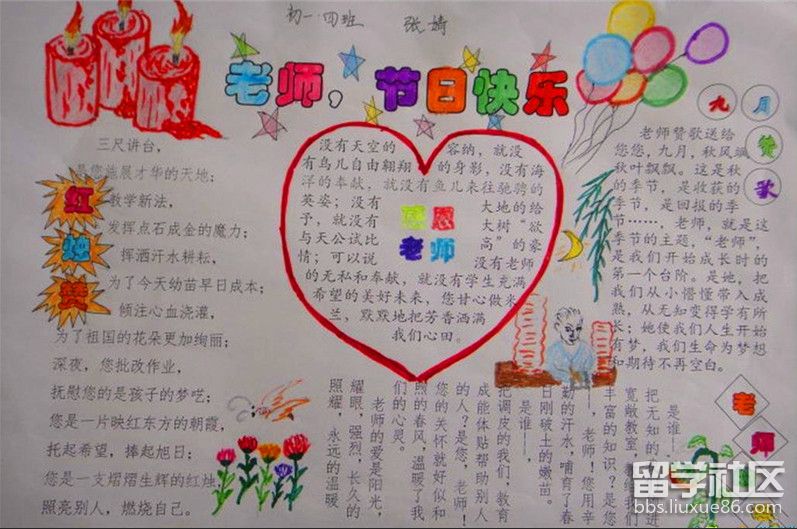 初一·四班 张婧
老师，节日快乐
红烛赞
三尺讲台，
是您施展才华的天地；
教学新法，
发挥点石成金的魔力；
挥洒汗水耕耘，
为了今天幼苗早日成本；
倾注心血浇灌，
为了祖国的花朵更加绚丽；
深夜，您批改作业，
抚慰您的是孩子的梦呓；
您是一片映红东方的朝霞，
托起希望，捧起旭日；
您是一支熠熠生辉的红烛，
照亮别人，燃烧自己。
感恩
老师
没有天空的容纳，就没
有鸟儿自由翱翔的身影，没有海
洋的奉献，就没有鱼儿来往驰骋的
英姿；没有大地的给
予，就没有大树“欲
与天公试比高”的豪
情；可以说没有老师
的无私和奉献，就没有学生充满
希望的美好未来，您甘心做米
兰，默默地把芳香洒满
我们心田。
九月赞歌
老师赞歌送给
您您，九月，秋风飒
秋叶飘飘。这是秋
的季节，是收获的
季节，是回报的季
节……，老师，就是这
季节的主题，“老师”，
是我们开始成长时的
第一个台阶。是她，把
我们从小懵懂带入成
熟，从无知变得学有所
长；她使我们人生开始
有梦，我们生命为梦想
和期待不再空白。
老师
是谁——
把无知的
进
宽敞教室，
我们
丰富的知识？是您
——，老师！您用辛
勤的汗水，哺育了春
日刚破土的嫩苗。
是谁——，
把调皮的我们，教育
成能体贴帮助别人
的人？是您，老师！
您的关怀就好似和
煦的春风，温暖了我
们的心灵。
老师的爱是阳光，
耀眼，强烈，长久的
照耀，永远的温暖
留学社区
bbs.liuxue86.com